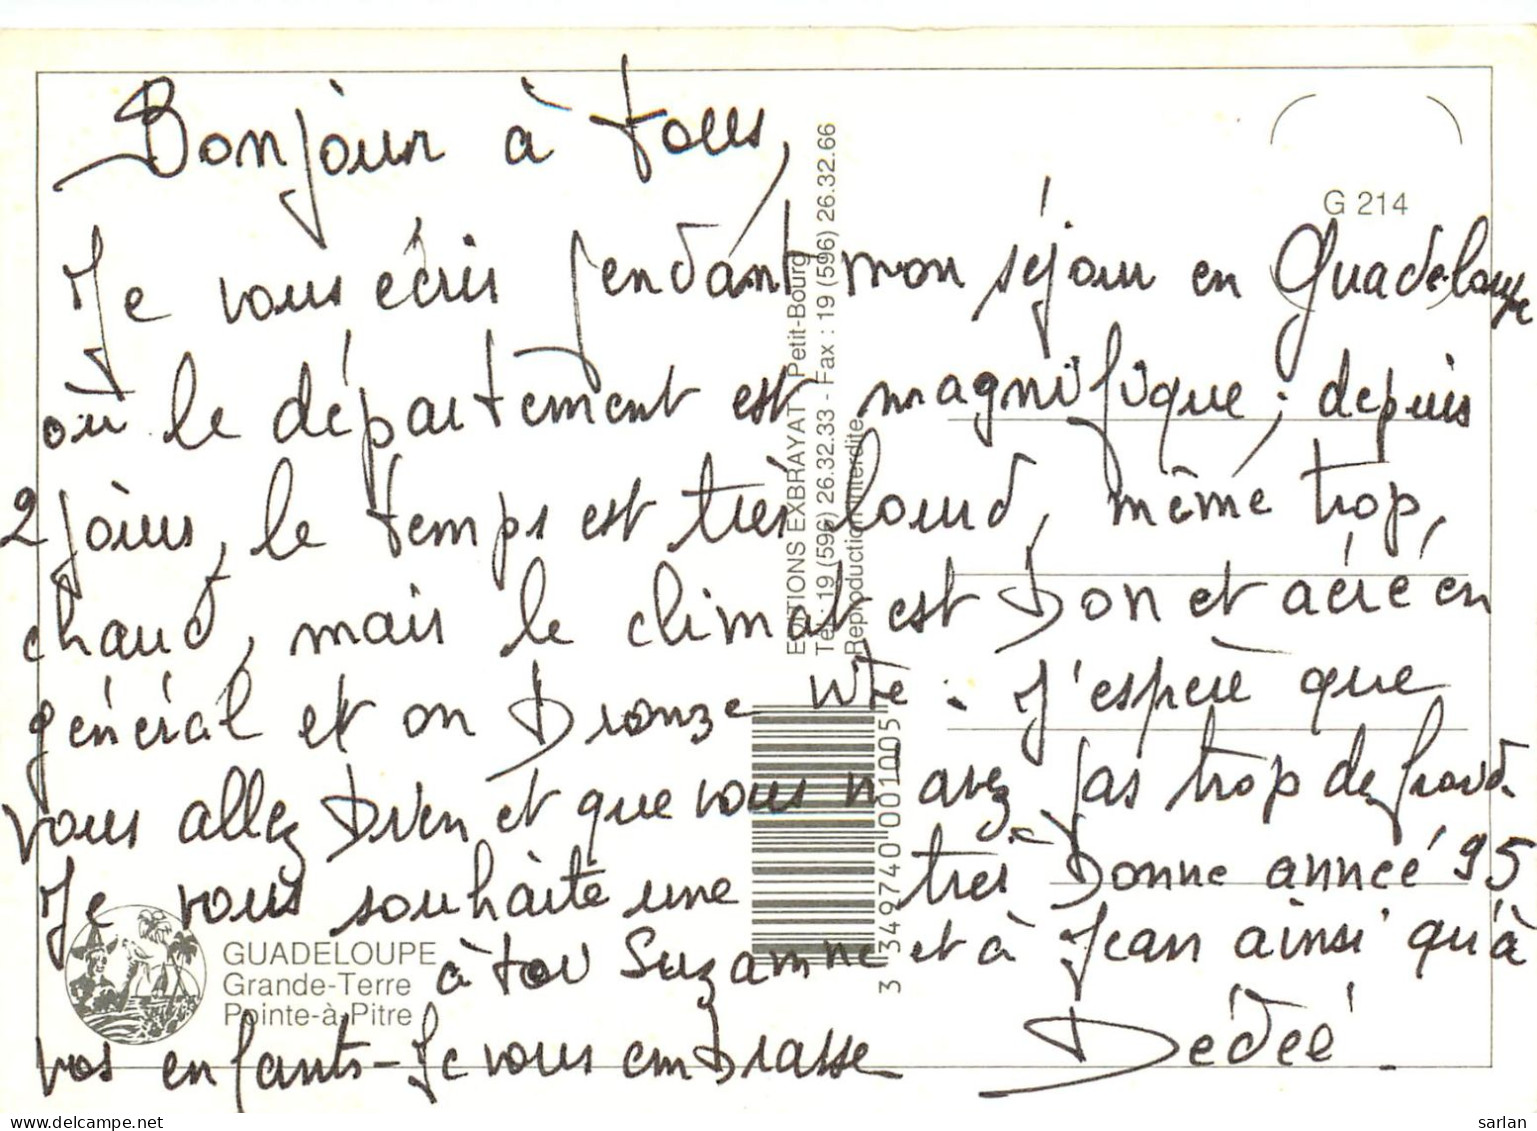 Bonjour à tous,
G 214
Je vous écris pendant mon séjour en Guadeloupe
où le département est magnifique ; depuis
2 jours, le temps est très lourd, même trop,
chaud, mais le climat est bon et aéré en
général et on bronze vite. J'espère que
vous allez bien et que vous n'avez pas trop de froid.
Je vous souhaite une très bonne année 95
à toi Suzanne et à Jean ainsi qu'à
vos enfants - Je vous embrasse Dédée
GUADELOUPE
Grande-Terre
Pointe-à-Pitre
EDITIONS EXBRAYAT - Petit-Bourg
Tél : 19 (596) 26.32.33 - Fax : 19 (596) 26.32.66
Reproduction interdite
3 349740 001005
sarlan
delcampe.net